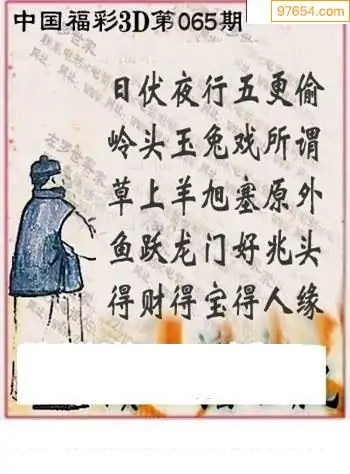 97654.com
中国福彩3D第065期
日伏夜行五更偷
岭头玉兔戏所谓
草上羊旭塞原外
鱼跃龙门好兆头
得财得宝得人缘